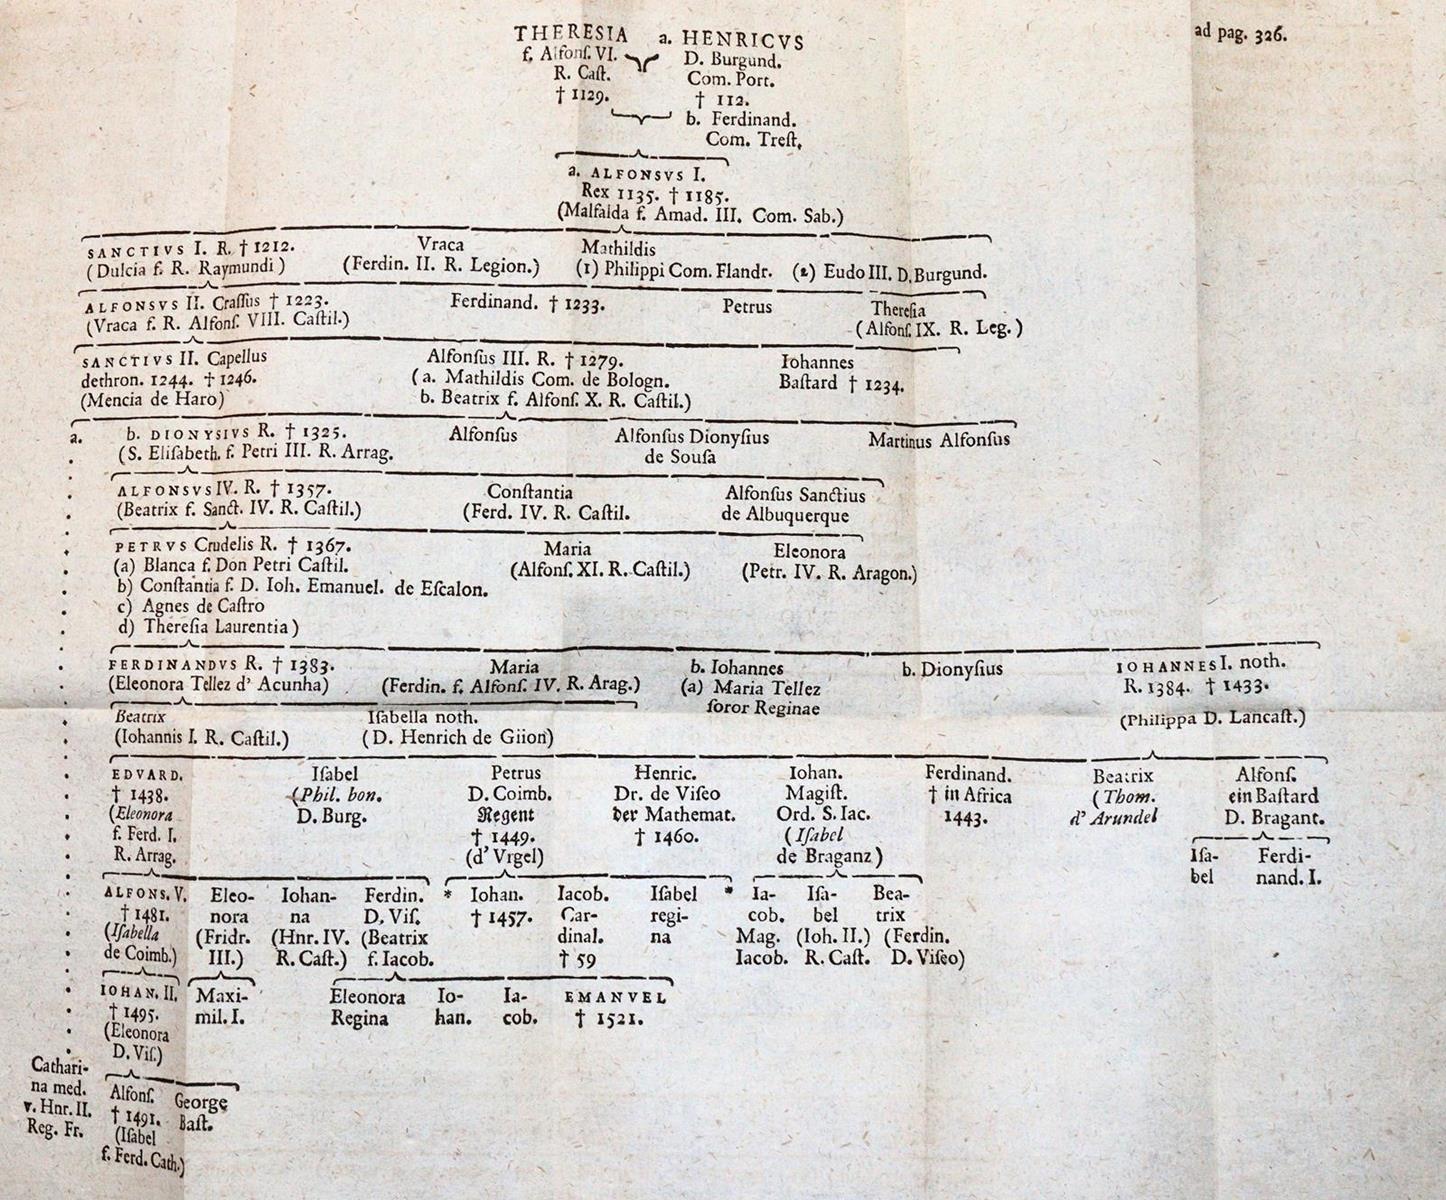 ad pag. 326.
THERESIA a. HENRICVS
f. Alfonſ. VI. D. Burgund.
R. Caſt. Com. Port.
† 1129. † 112.
b. Ferdinand.
Com. Treſt.
a. ALFONSVS I.
Rex 1135. † 1185.
(Malfalda f. Amad. III. Com. Sab.)
SANCTIVS I. R. † 1212. Vraca Mathildis
(Dulcia f. R. Raymundi) (Ferdin. II. R. Legion.) (1) Philippi Com. Flandr. (2) Eudo III. D. Burgund.
ALFONSVS II. Craſſus † 1223. Ferdinand. † 1233. Petrus Thereſia
(Vraca f. R. Alfonſ. VIII. Caſtil.) (Alfonſ. IX. R. Leg.)
SANCTIVS II. Capellus Alfonſus III. R. † 1279. Iohannes
dethron. 1244. † 1246. (a. Mathildis Com. de Bologn. Baſtard † 1234.
(Mencia de Haro) b. Beatrix f. Alfonſ. X. R. Caſtil.)
a. b. DIONYSIVS R. † 1325. Alfonſus Alfonſus Dionyſius Martinus Alfonſus
(S. Eliſabeth. f. Petri III. R. Arrag. de Souſa
ALFONSVS IV. R. † 1357. Conſtantia Alfonſus Sanctius
(Beatrix f. Sanct. IV. R. Caſtil.) (Ferd. IV. R. Caſtil. de Albuquerque
PETRVS Crudelis R. † 1367. Maria Eleonora
(a) Blanca f. Don Petri Caſtil. (Alfonſ. XI. R. Caſtil.) (Petr. IV. R. Aragon.)
b) Conſtantia f. D. Ioh. Emanuel. de Eſcalon.
c) Agnes de Caſtro
d) Thereſia Laurentia)
FERDINANDVS R. † 1383. Maria b. Iohannes b. Dionyſius IOHANNES I. noth.
(Eleonora Tellez d' Acunha) (Ferdin. f. Alfonſ. IV. R. Arag.) (a) Maria Tellez R. 1384. † 1433.
ſoror Reginae (Philippa D. Lancaſt.)
Beatrix Iſabella noth.
(Iohannis I. R. Caſtil.) (D. Henrich de Giion)
EDVARD. Iſabel Petrus Henric. Iohan. Ferdinand. Beatrix Alfonſ.
† 1438. (Phil. bon. D. Coimb. Dr. de Viſeo Magiſt. † in Africa (Thom. ein Baſtard
(Eleonora D. Burg. Regent der Mathemat. Ord. S. Iac. 1443. d' Arundel D. Bragant.
f. Ferd. I. † 1449. † 1460. (Iſabel
R. Arrag. (d' Vrgel) de Braganz)
Iſa- Ferdi-
bel nand. I.
ALFONS. V. Eleo- Iohan- Ferdin. * Iohan. Iacob. Iſabel * Ia- Iſa- Bea-
† 1481. nora na D. Viſ. † 1457. Car- regi- cob. bel trix
(Iſabella (Fridr. (Hnr. IV. (Beatrix dinal. na Mag. (Ioh. II.) (Ferdin.
de Coimb.) III.) R. Caſt.) f. Iacob. † 59 Iacob. R. Caſt. D. Viſeo)
IOHAN. II. Maxi- Eleonora Io- Ia- EMANVEL
† 1495. mil. I. Regina han. cob. † 1521.
(Eleonora
D. Viſ.)
Cathari-
na med.
v. Hnr. II.
Reg. Fr.
Alfonſ. George
† 1491. Baſt.
(Iſabel
f. Ferd. Cath.)